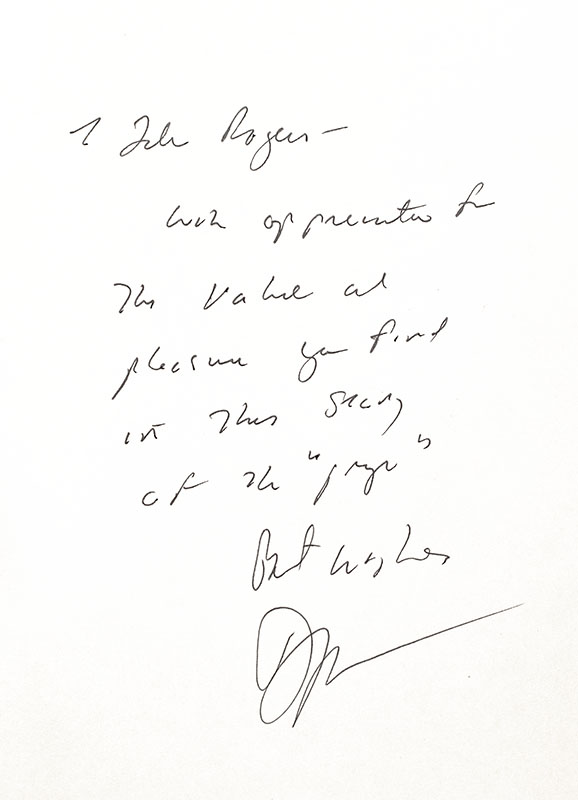 To John Rogers —
with appreciation for
the value and
pleasure you find
in this study
of the " "
Best wishes